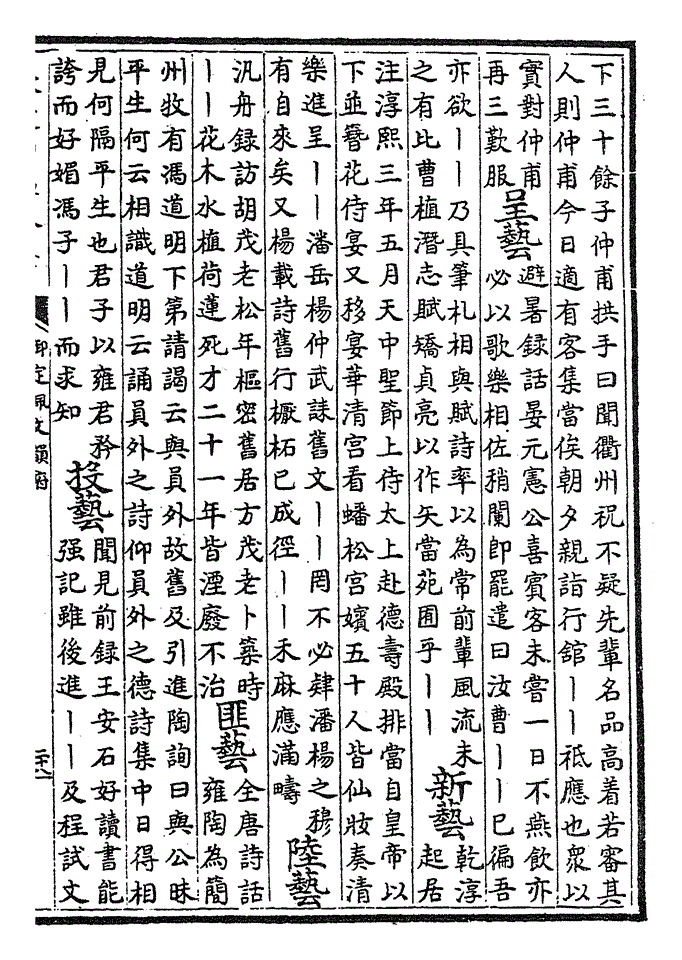 下三十餘子仲甫拱手曰聞衢州祝不疑先輩名品高着若審其
人則仲甫今日適有客集當俟朝夕親詣行舘丨丨祗應也衆以
實對仲甫
再三歎服
呈藝
避暑録話晏元憲公喜賓客未嘗一日不燕飲亦
必以歌樂相佐稍闌即罷遣曰汝曹丨丨已徧吾
亦欲丨丨乃具筆札相與賦詩率以為常前輩風流未
之有比曹植潛志賦矯貞亮以作矢當苑囿乎丨丨
新藝
乾淳
起居
注淳熙三年五月天中聖節上侍太上赴德壽殿排當自皇帝以
下並簪花侍宴又移宴華清宮看蟠松宮嬪五十人皆仙妝奏清
樂進呈丨丨潘岳楊仲武誄舊文丨丨罔不必肄潘楊之穆
有自來矣又楊載詩舊行橛柘已成徑丨丨禾麻應滿疇
陸藝
汎舟録訪胡茂老松年樞密舊居方茂老卜築時
丨丨花木水植荷蓮死才二十一年皆湮廢不治
匪藝
全唐詩話
雍陶為簡
州牧有馮道明下第請謁云與員外故舊及引進陶詢曰與公昧
平生何云相識道明云誦員外之詩仰員外之德詩集中日得相
見何隔平生也君子以雍君矜
誇而好媚馮子丨丨而求知
投藝
聞見前録王安石好讀書能
强記雖後進丨丨及程試文
御定佩文韻府